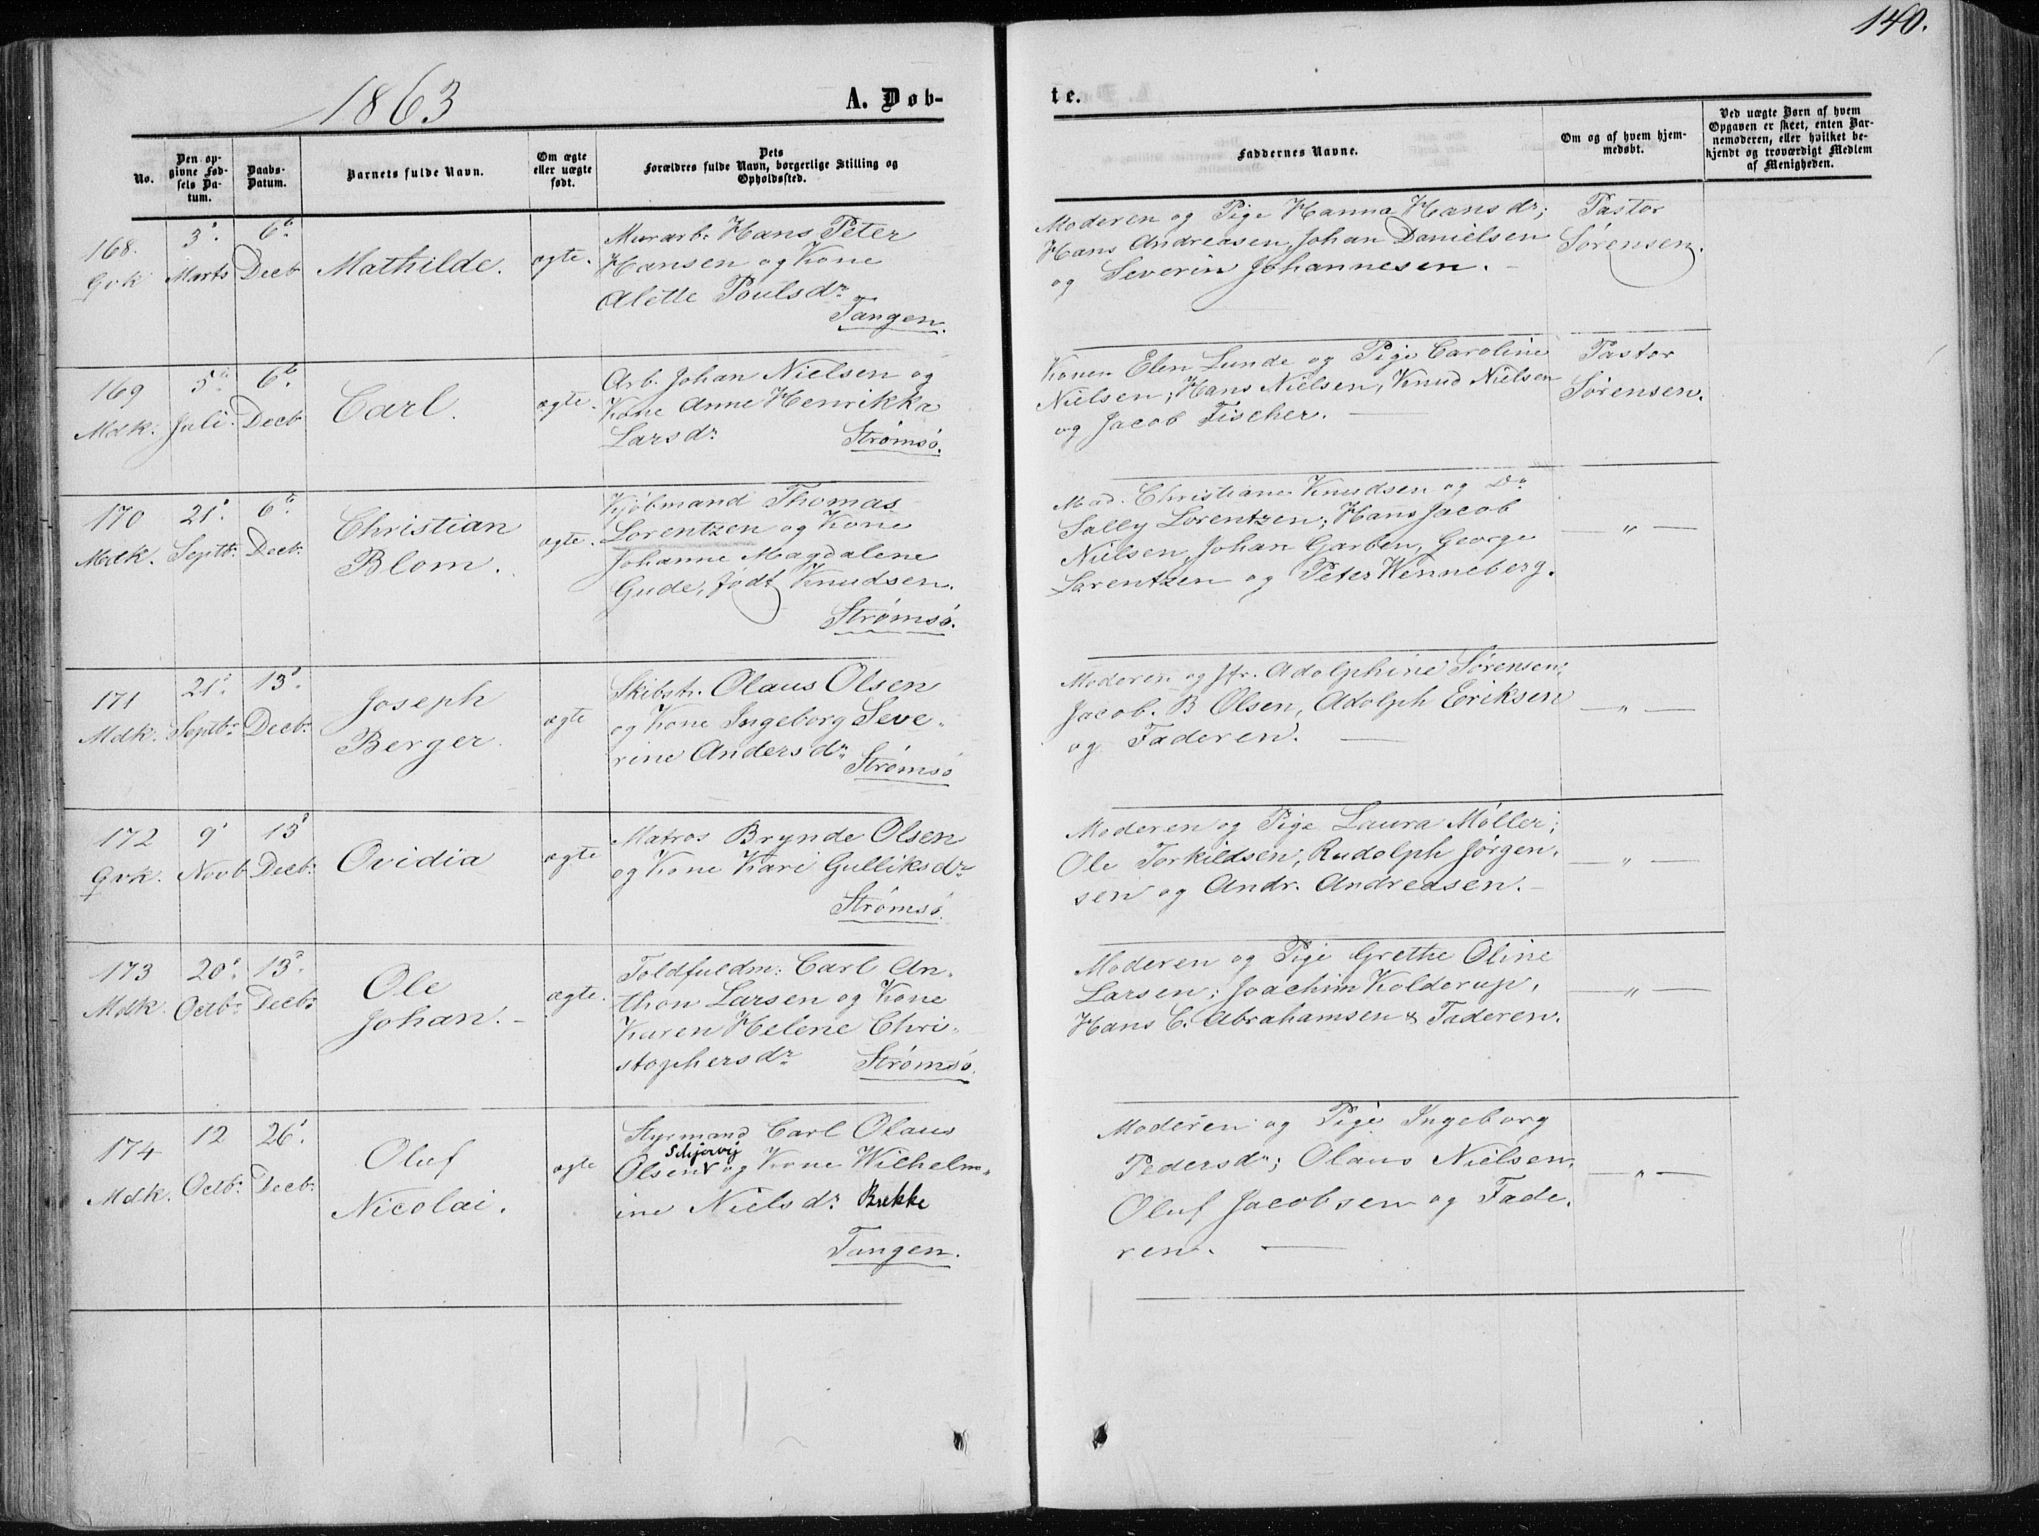 140.
1863
A. Døb-
te.
No.
Den op-
givne Fød-
sels Da-
tum.
Daabs-
Datum.
Barnets fulde Navn.
Om ægte
eller uægte
født.
Dets
Forældres fulde Navn, borgerlige Stilling og
Opholdssted.
Faddernes Navne.
Om og af hvem hjem-
medøbt.
Ved uægte Børn af hvem
Opgaven er skeet, enten Bar-
nemoderen, eller hvilket be-
kjendt og troværdigt Medlem
af Menigheden.
168.
Qvk
3d.
Marts
6te
Decb
Mathilde.
ægte.
Murarb. Hans Peter
Hansen og Kone
Alette Poulsdr.
Tangen.
Moderen og Pige Hanna Hansdr;
Hans Andreasen, Johan Danielsen
og Severin Johannesen. -
Pastor
Sørensen.
169
Mdk.
5te
Juli.
6te
Decb
Carl.
ægte.
Arb. Johan Nielsen og
Kone Anne Henrikka
Larsdr.
Strømsø.
Konen Elen Lunde og Pige Caroline
Nielsen; Hans Nielsen, Knud Nielsen
og Jacob Fischer. —
Pastor
Sørensen.
170
Mdk.
21d.
Septb.
6te
Decb.
Christian
Blom.
ægte.
Kjøbmand Thomas
Lorentzen og Kone
Johanne Magdalene
Gude, født Knudsen.
Strømsø.
Mad. Christiane Knudsen og Do
Sally Lorentzen; Hans Jacob
Nielsen, Johan Garben, George
Lorentzen og Peter Wenneberg.
— " —
171
Mdk.
21d.
Septbr.
13d.
Decbr.
Joseph
Berger.
ægte
Skibstr. Olaus Olsen
og Kone Ingeborg Seve-
rine Andersdr.
Strømsø
Moderen og Jfr. Adolphine Sørensen;
Jacob. B Olsen, Adolph Eriksen
og Faderen. —
— " —
172
Qvk.
9d
Novb
13d
Decb.
Ovidia
ægte
Matros Brynde Olsen
og Kone Kari Gulliksdr.
Strømsø.
Moderen og Pige Laura Møller;
Ole Torkildsen, Rudolph Jørgen-
sen og Andr. Andreasen. -
— " —
173
Mdk.
20d.
Octbr.
13d.
Decbr
Ole
Johan. -
ægte.
Toldfuldm: Carl An-
thon Larsen og Kone
Karen Helene Chri-
stophersdr.
Strømsø.
Moderen og Pige Grethe Oline
Larsen; Joachim Kolderup,
Hans C. Abrahamsen & Faderen.
— " —
174
Mdk.
12
Octbr.
26d.
Decbr.
Oluf
Nicolai.
ægte
Styrmand Carl Olaus
Schjervig
Olsen og Kone Wilhelm-
ine Nielsdr. Bække
Tangen.
Moderen og Pige Ingeborg
Pedersdr; Olaus Nielsen,
Oluf Jacobsen og Fade-
ren. —
— " —